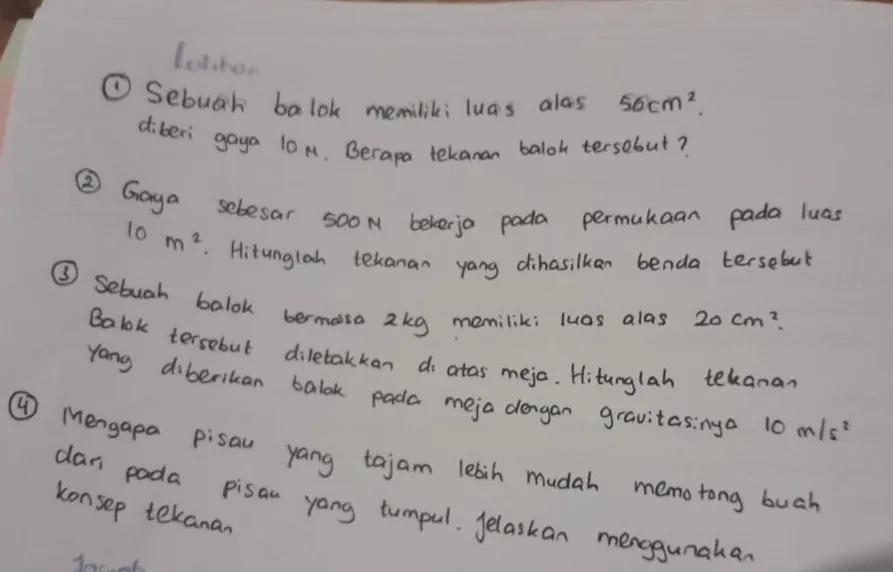 Latihan
① Sebuah balok memiliki luas alas 56 cm².
diberi gaya 10 N. Berapa tekanan balok tersebut?
② Gaya sebesar 500 N bekerja pada permukaan pada luas
10 m². Hitunglah tekanan yang dihasilkan benda tersebut
③ Sebuah balok bermasa 2 kg memiliki luas alas 20 cm².
Balok tersebut diletakkan di atas meja. Hitunglah tekanan
yang diberikan balok pada meja dengan gravitasinya 10 m/s²
④ Mengapa pisau yang tajam lebih mudah memotong buah
dari pada pisau yang tumpul. Jelaskan menggunakan
konsep tekanan
Jawab